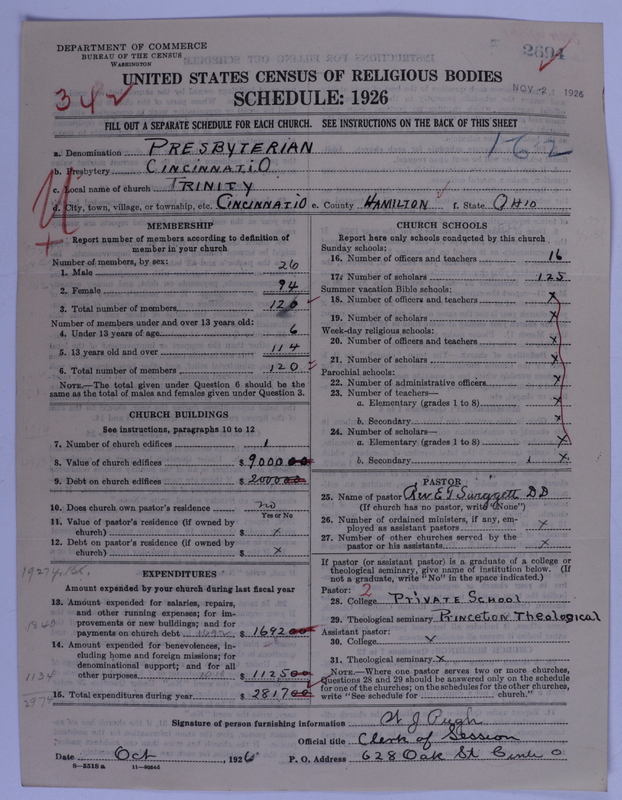 DEPARTMENT OF COMMERCE
BUREAU OF THE CENSUS
WASHINGTON
2694
UNITED STATES CENSUS OF RELIGIOUS BODIES
SCHEDULE: 1926
NOV 2 1926
342
FILL OUT A SEPARATE SCHEDULE FOR EACH CHURCH. SEE INSTRUCTIONS ON THE BACK OF THIS SHEET
162
a. Denomination PRESBYTERIAN
b. Presbytery CINCINNATI O
c. Local name of church TRINITY
d. City, town, village, or township, etc. CINCINNATI O e. County HAMILTON f. State OHIO
MEMBERSHIP
Report number of members according to definition of member in your church
Number of members, by sex:
1. Male 26
2. Female 94
3. Total number of members 120
Number of members under and over 13 years old:
4. Under 13 years of age 6
5. 13 years old and over 114
6. Total number of members 120
NOTE.—The total given under Question 6 should be the same as the total of males and females given under Question 3.
CHURCH BUILDINGS
See instructions, paragraphs 10 to 12
7. Number of church edifices 1
8. Value of church edifices $ 900000
9. Debt on church edifices $ 200000
10. Does church own pastor's residence no
Yes or No
11. Value of pastor's residence (if owned by church) $ x
12. Debt on pastor's residence (if owned by church) $ x
EXPENDITURES
Amount expended by your church during last fiscal year
13. Amount expended for salaries, repairs, and other running expenses; for improvements or new buildings; and for payments on church debt 1692 $ 169200
14. Amount expended for benevolences, including home and foreign missions; for denominational support; and for all other purposes $ 112500
1134
15. Total expenditures during year $ 281700
CHURCH SCHOOLS
Report here only schools conducted by this church
Sunday schools:
16. Number of officers and teachers 16
17. Number of scholars 125
Summer vacation Bible schools:
18. Number of officers and teachers x
19. Number of scholars x
Week-day religious schools:
20. Number of officers and teachers x
21. Number of scholars x
Parochial schools:
22. Number of administrative officers x
23. Number of teachers—
a. Elementary (grades 1 to 8) x
b. Secondary x
24. Number of scholars—
a. Elementary (grades 1 to 8) x
b. Secondary x
PASTOR
25. Name of pastor Rev E T Swiggett DD
(If church has no pastor, write "None")
26. Number of ordained ministers, if any, employed as assistant pastors x
27. Number of other churches served by the pastor or his assistants x
If pastor (or assistant pastor) is a graduate of a college or theological seminary, give name of institution below. (If not a graduate, write "No" in the space indicated.)
Pastor: 2
28. College PRIVATE SCHOOL
29. Theological seminary PRINCETON THEOLOGICAL
Assistant pastor:
30. College x
31. Theological seminary x
NOTE.—Where one pastor serves two or more churches, Questions 28 and 29 should be answered only on the schedule for one of the churches; on the schedules for the other churches, write "See schedule for church."
Signature of person furnishing information W J Pugh
Official title Clerk of Session
Date Oct , 1926 P. O. Address 628 Oak St Cinti O
8—5518 a